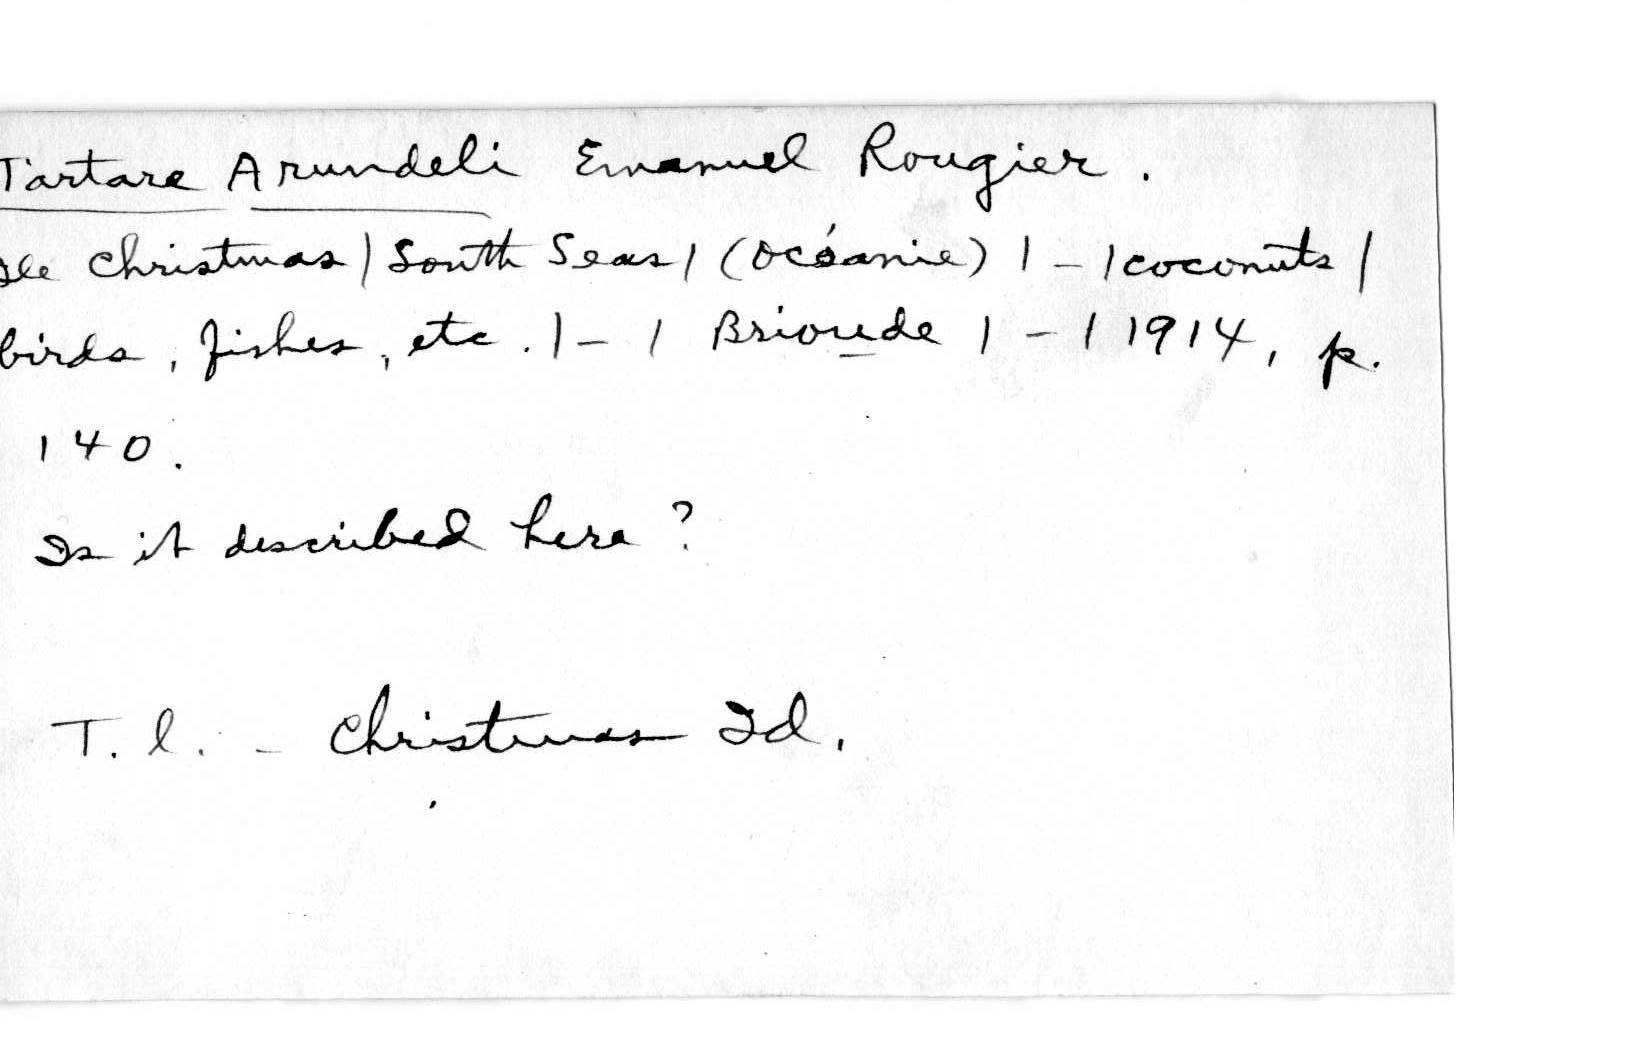 Tartare Arundeli Emanuel Rougier.
Ile Christmas | South Seas | (Océanie) | - | coconuts |
birds, fishes, etc. | - | Brioude | - | 1914, p.
140.
Is it described here?
T. l. - Christmas Id.